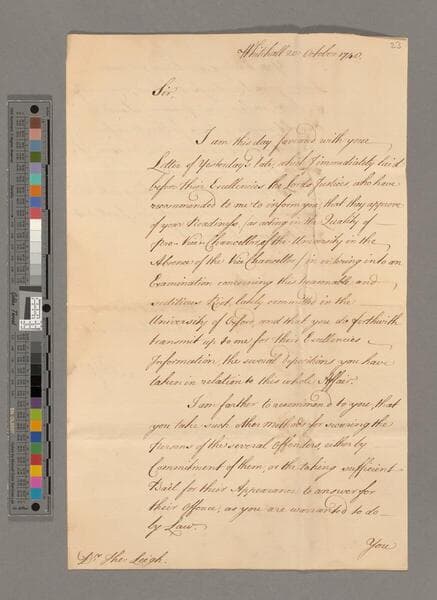 23
Whitehall 20 October 1740.
Sir.
I am this day favoured with your
Letter of Yesterday's Date, which I immediately lai'd
before their Excellencies the Lords Justices, who have
recommanded to me to inform you, that they approve
of your Readiness, (as acting in the Quality of
Pro-Vice-Chancellor of the University in the
Absence of the Vice Chancellor) in entering into an
Examination concerning this treasonable and
seditious Riot, lately committed in the
University of Oxford, and that you do forthwith
transmit up to me for their Excellencies
Information, the several Depositions you have
taken in relation to this whole Affair.
I am farther to recommend to you, that
you take such other methods for securing the
Persons of the several Offenders, either by
Commitment of them, or the taking sufficient
Bail for their Appearance to answer for
their Offence, as you are warranted to do
by Law.
You
Dr. The Leigh.